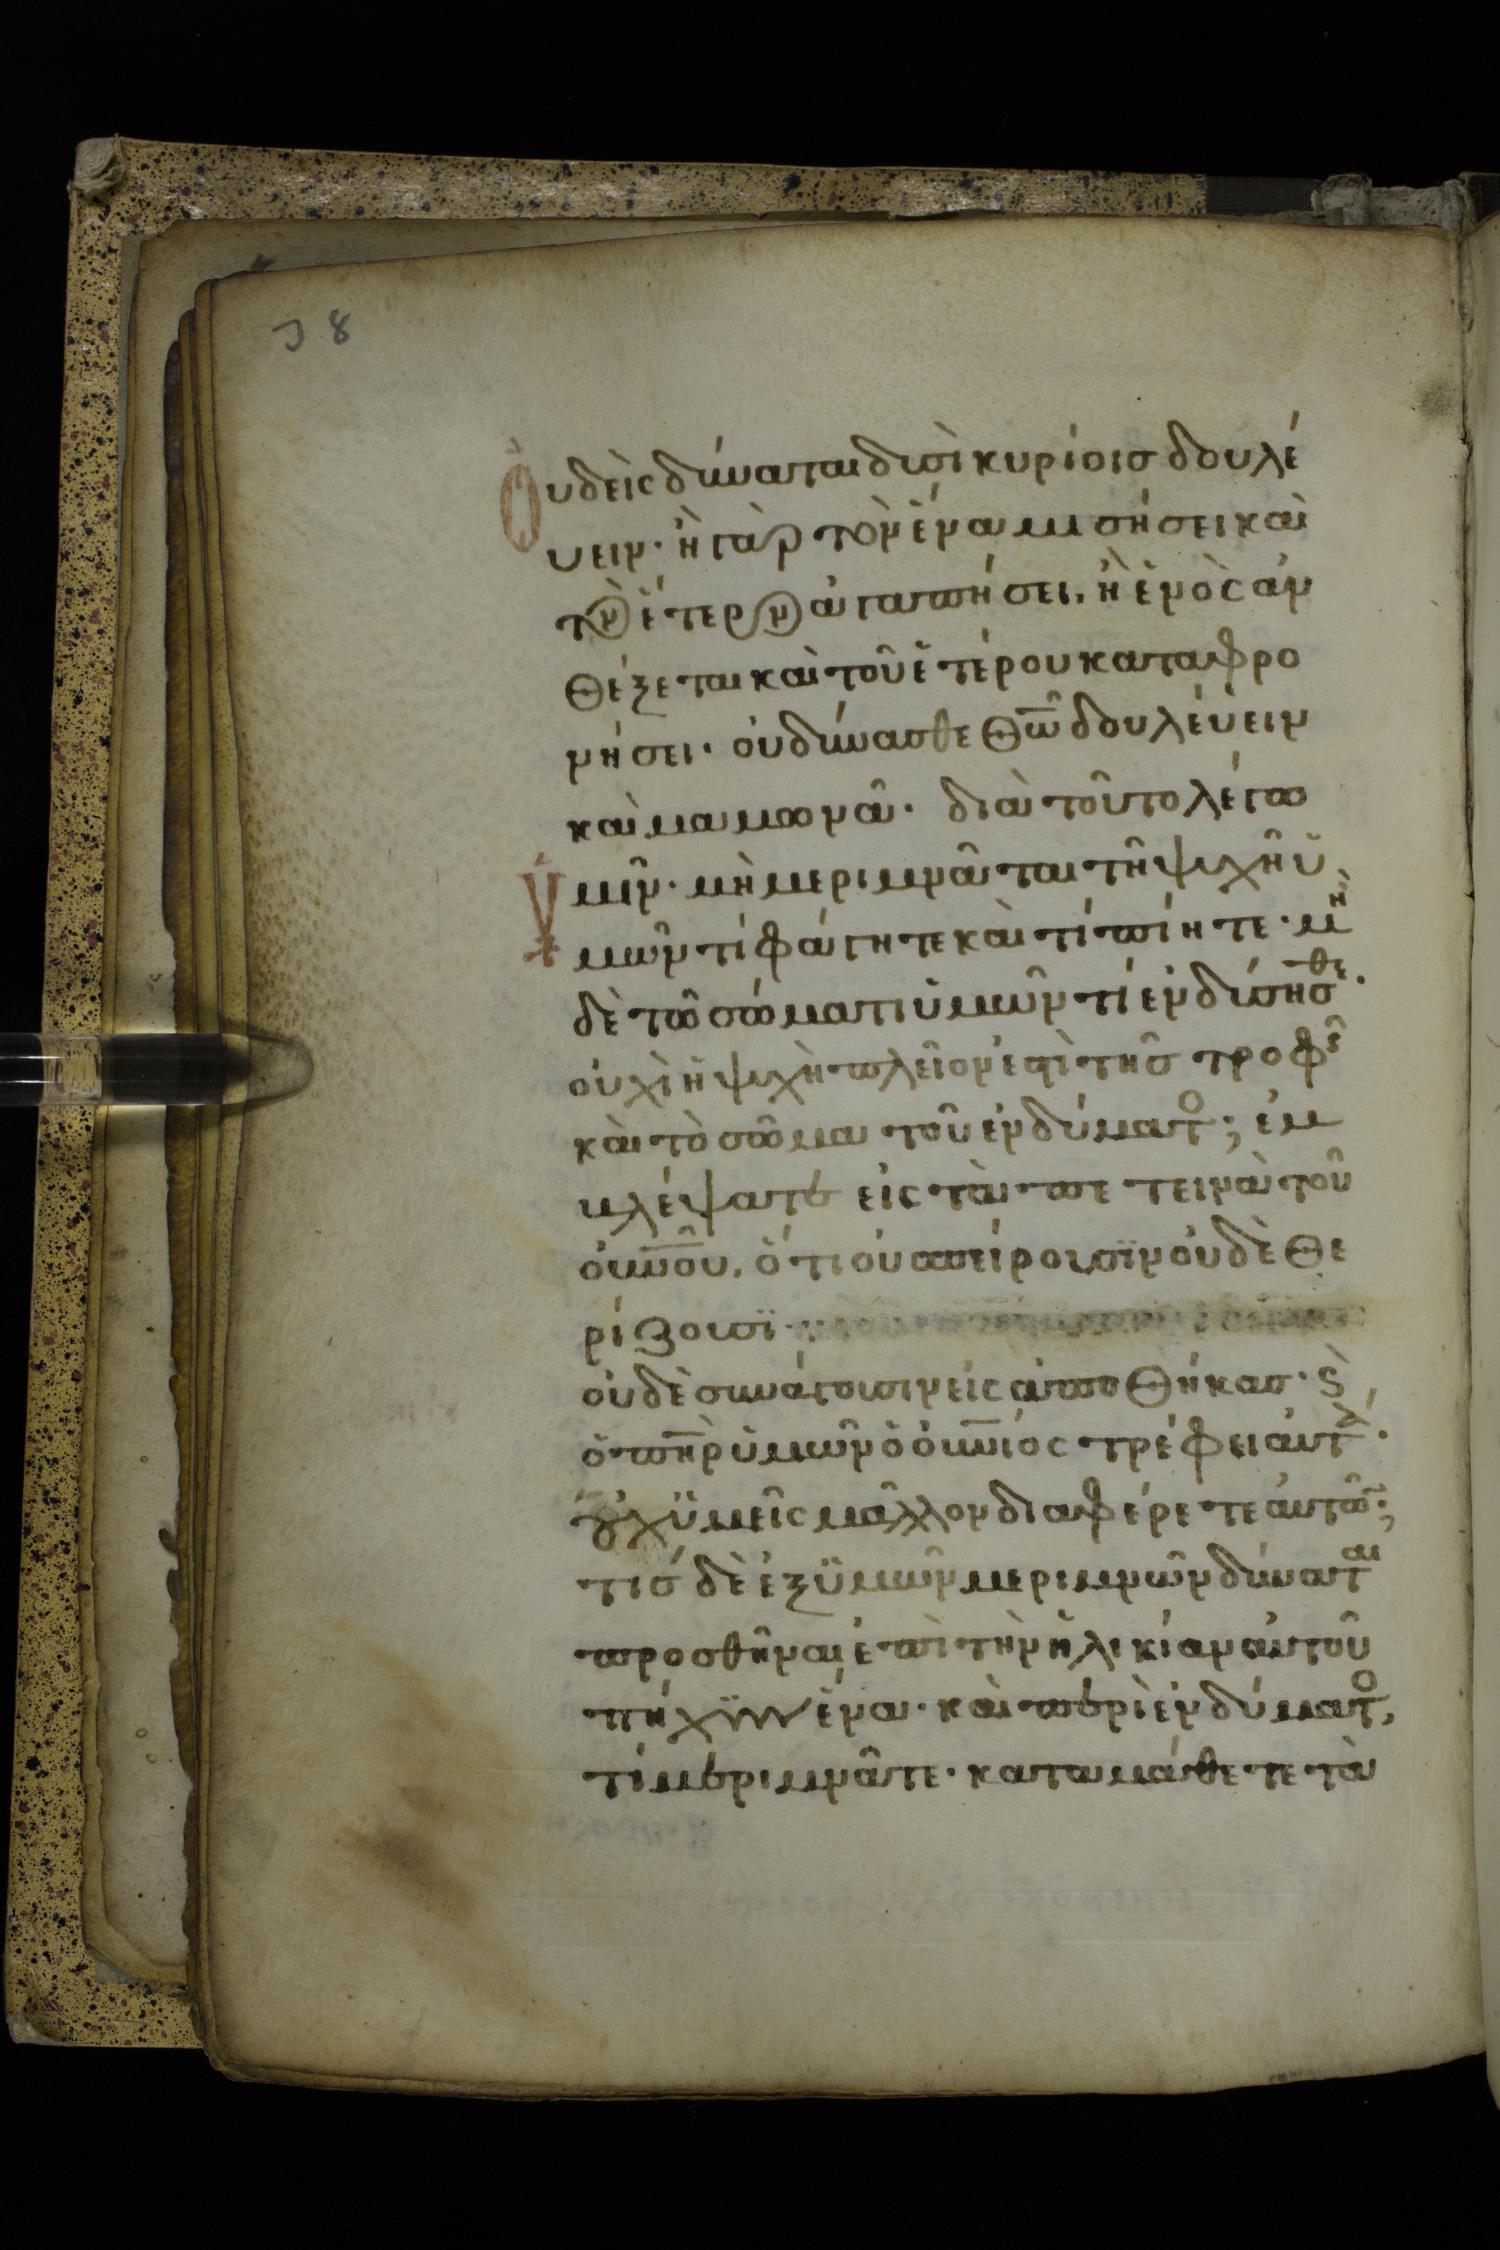 38
Ὀυδεὶς δύναται δυσὶ κυρίοισ δουλέ
υειν· ἢ γὰρ τὸν ἕνα μισήσει καὶ
τὸν ἕτερον ἀγαπήσει, ἢ ἑνὸς ἀν
θέξεται καὶ τοῦ ἑτέρου καταφρο
νήσει· οὐ δύνασθε θω̅ δουλέυειν
καὶ μαμωνᾶ· διὰ τοῦτο λέγω
ὑμῖν· μὴ μεριμνᾶται τῆ ψυχῆ ὑ
μῶν τί φάγητε καὶ τί πίητε· μὴ
δὲ τῶ σώματι ὑμῶν τί ἐνδύσησθε·
οὐχὶ ἡ ψυχὴ πλεῖον ἐστὶ τῆσ τροφῆσ
καὶ τὸ σῶμα τοῦ ἐνδύματο; ἐμ
βλέψατε εἰς τὰ πετεινὰ τοῦ
ουνου, ὅτι οὐ σπείρουσϊν οὐδὲ θε
ρίζουσϊ·
οὐδὲ συνάγουσιν εἰς ἀποθήκασ· ϗ
ὁ πηρ ὑμῶν ὁ ουνιός τρέφει αυτά·
οὐχ ϋμεῖς μᾶλλον διαφέρετε ἀυτῶν;
τισ δὲ ἐξ ϋμῶν μεριμνῶν δύναται
προσθῆναι ἐπὶ τὴν ἡλικίαν ἀυτοῦ
πήχϋν ἕνα· καὶ περὶ ἐνδύματο,
τί μεριμνᾶτε· καταμάθετε τὰ